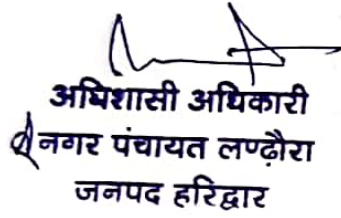 अधिशासी अधिकारी
नगर पंचायत लण्ढौरा
जनपद हरिद्वार